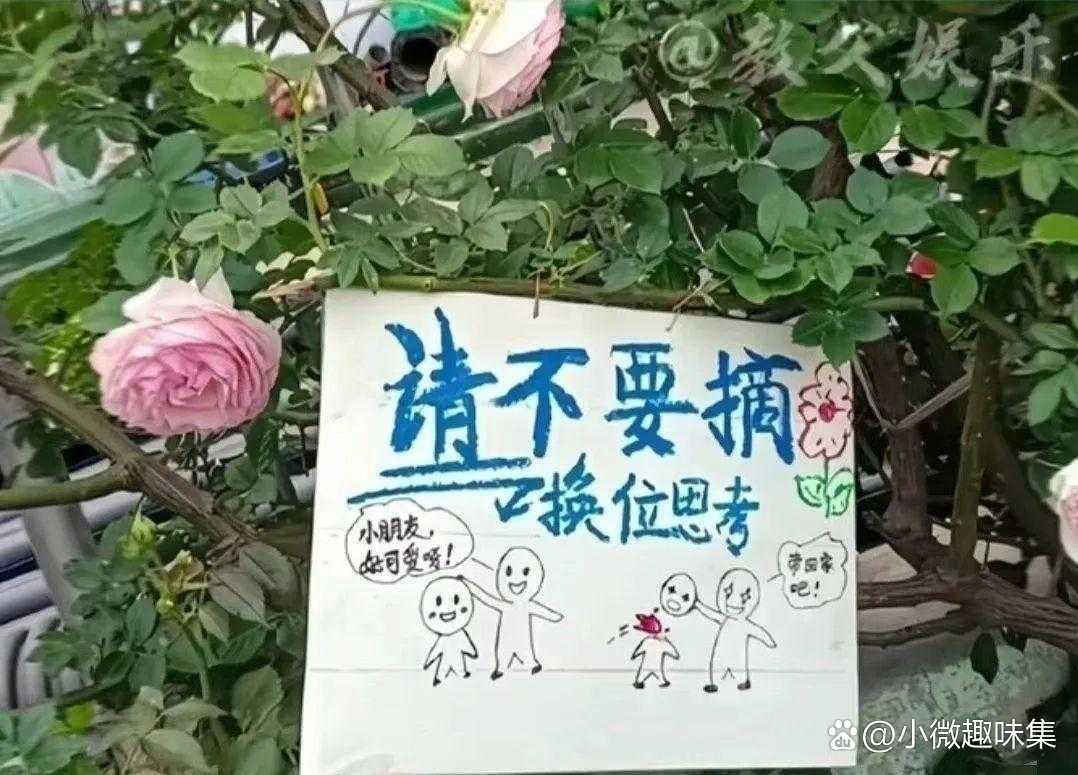 @教父娱乐
请不要摘
换位思考
小朋友,
好可爱呀!
带回家
吧!
@小微趣味集